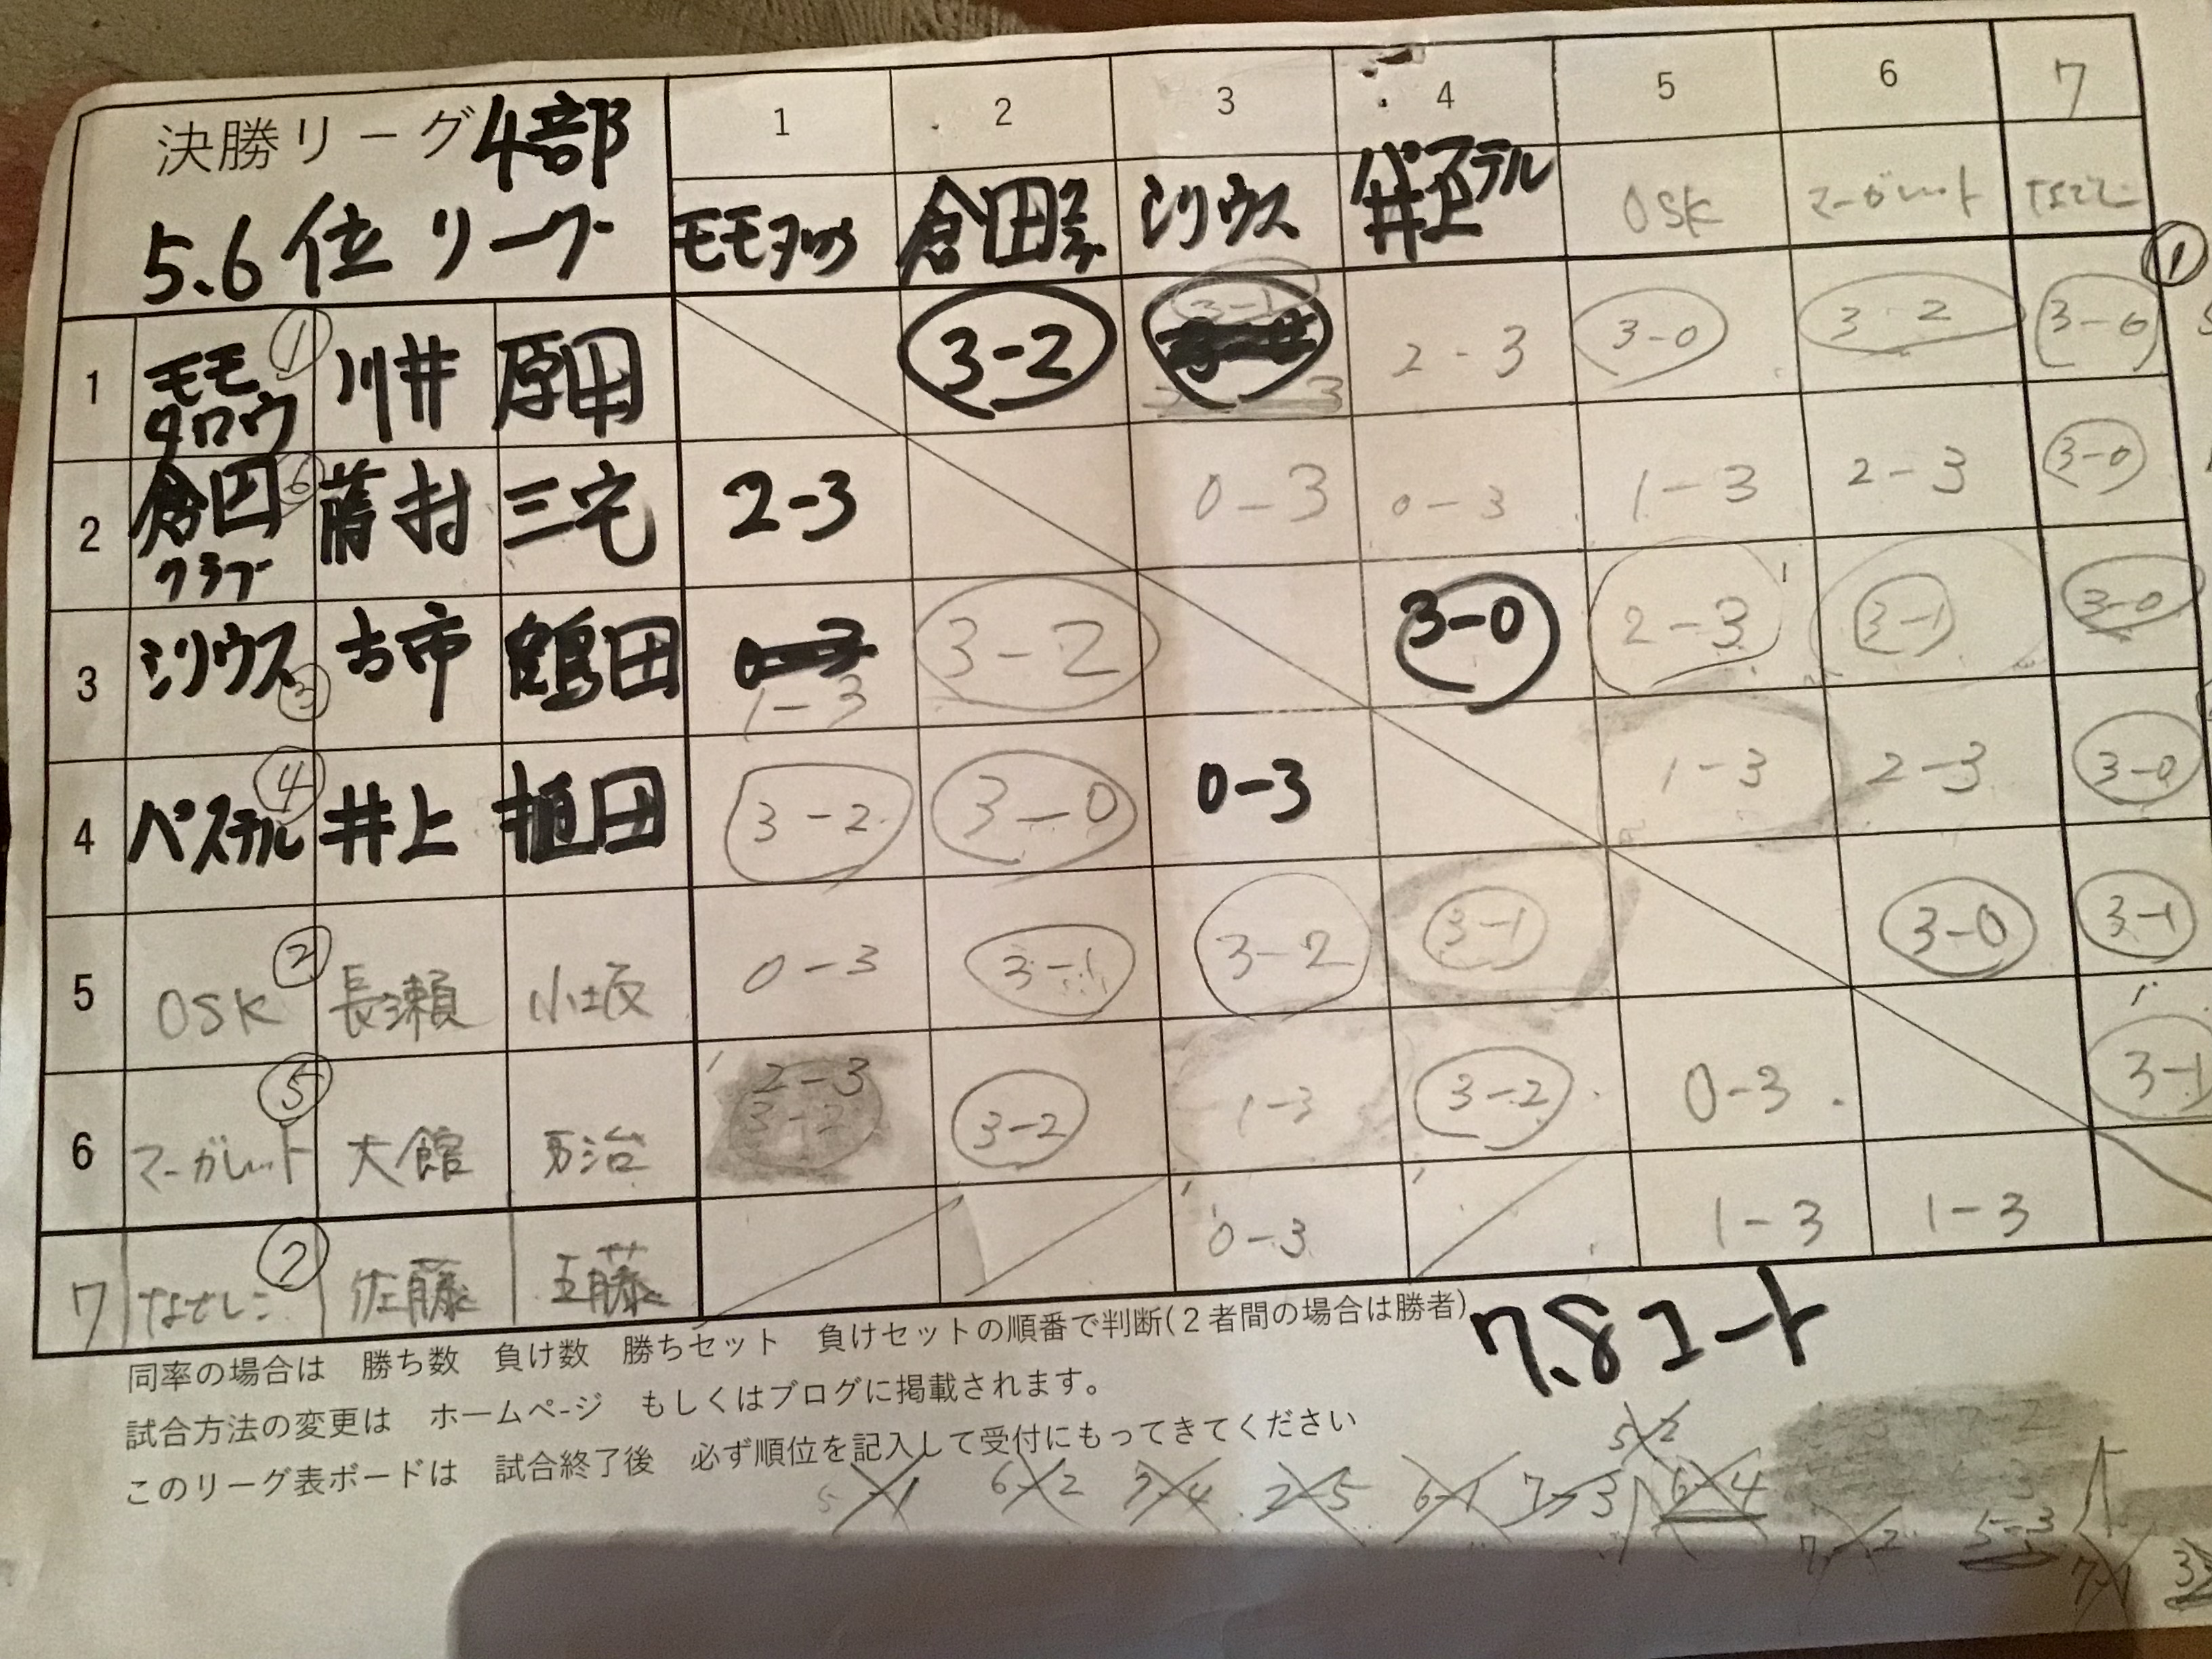 決勝リーグ 4部
5.6位リーグ
1 2 3 4 5 6 7
モモタロウ 倉田クラブ シリウス パステル 井上 OSK マーガレット なでしこ
1 モモタロウ ① 川井 原田 3-2 3-1 2-3 3-0 3-2 3-0 ①
2 倉田クラブ ⑥ 藤村 三宅 2-3 0-3 0-3 1-3 2-3 3-0
3 シリウス ③ 古市 鶴田 1-3 3-2 3-0 2-3 3-1 3-0
4 パステル ④ 井上 植田 3-2 3-0 0-3 1-3 2-3 3-0
5 OSK ② 長瀬 小坂 0-3 3-1 3-2 3-1 3-0 3-1
6 マーガレット ⑤ 大館 2-3 3-2 1-3 3-2 0-3 3-1
7 ⑦ 佐藤 0-3 1-3 1-3
同率の場合は 勝ち数 負け数 勝ちセット 負けセットの順番で判断(2者間の場合は勝者)
7.8コート
試合方法の変更は ホームページ もしくはブログに掲載されます。
このリーグ表ボードは 試合終了後 必ず順位を記入して受付にもってきてください
5-2
5-1 6-2 7-4 2-5 6-1 7-3 6-4
7-2 5-3 7-1